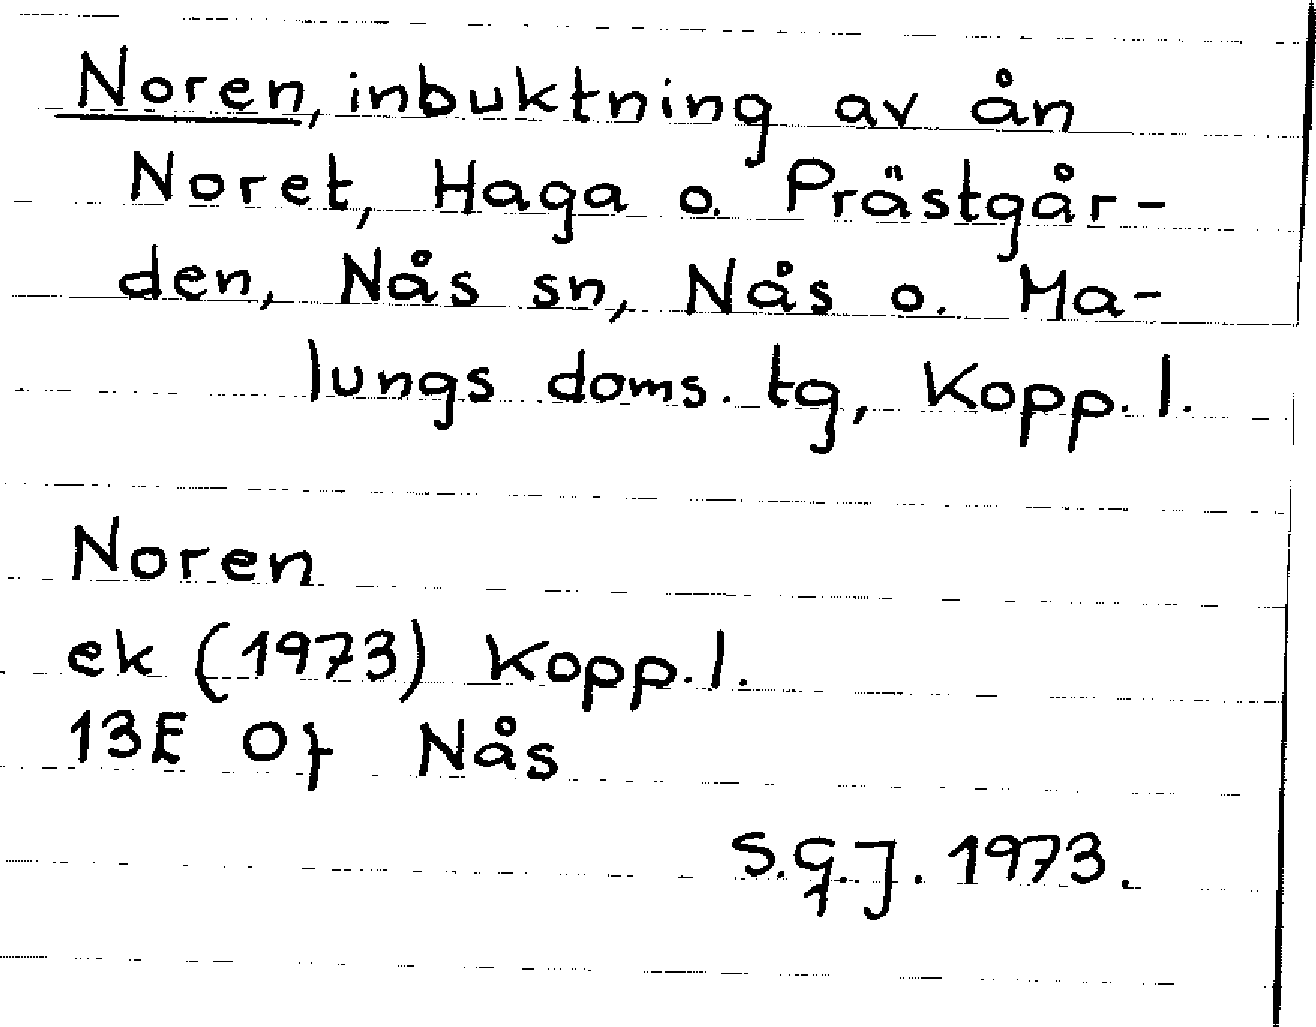 Noren, inbuktning av ån
Noret, Haga o. Prästgår-
den, Nås sn, Nås o. Ma-
lungs doms. tg, Kopp. l.
Noren
ek (1973) Kopp. l.
13E 0f Nås
S.G.J. 1973.